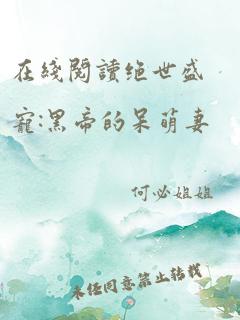 在綫閱讀绝世盛
寵:黑帝的呆萌妻
何必姐姐
未经同意禁止转载